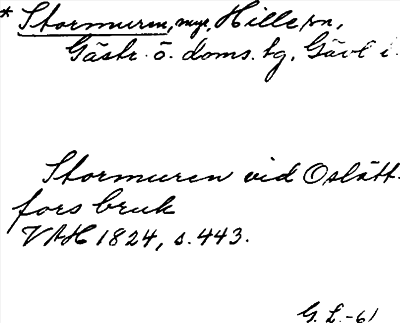 * Stormuren, myr, Hille sn,
Gästr. ö. doms. tg, Gävl. l.
Stormuren vid Oslätt-
fors bruk
VAH 1824, s. 443.
G. L. -61